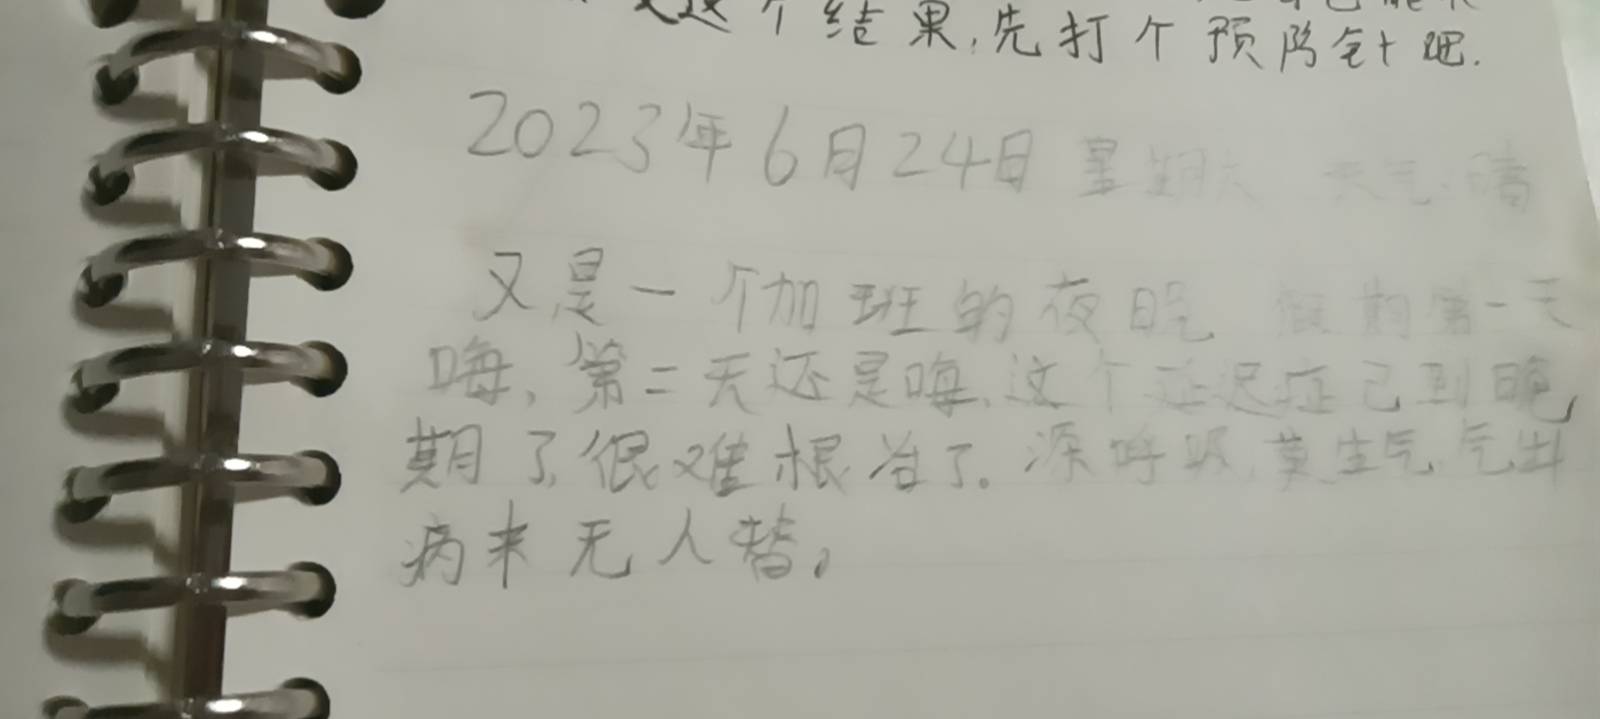 这个结果,先打个预防针吧.
2023年6月24日 星期六 天气:晴
又是一个加班的夜晚 假期第一天
嗨,第二天还是嗨,这个延迟症已到晚
期了,很难根治了.深呼吸,莫生气,气出
病来无人替,